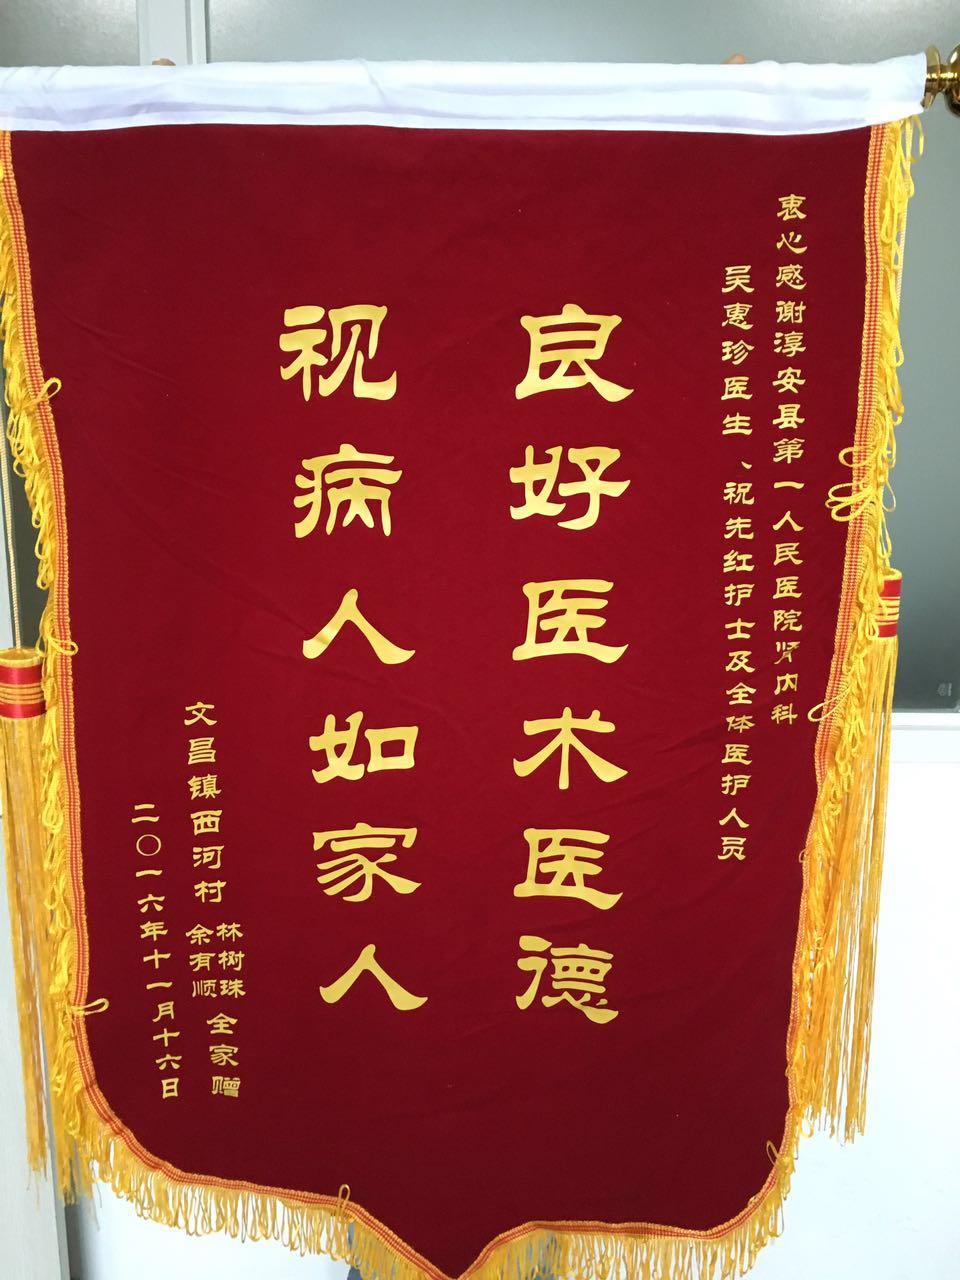 衷心感谢淳安县第一人民医院肾内科
吴惠珍医生、祝先红护士及全体医护人员
良好医术医德
视病人如家人
文昌镇西河村 林树珠 余有顺 全家赠
二〇一六年十一月十六日